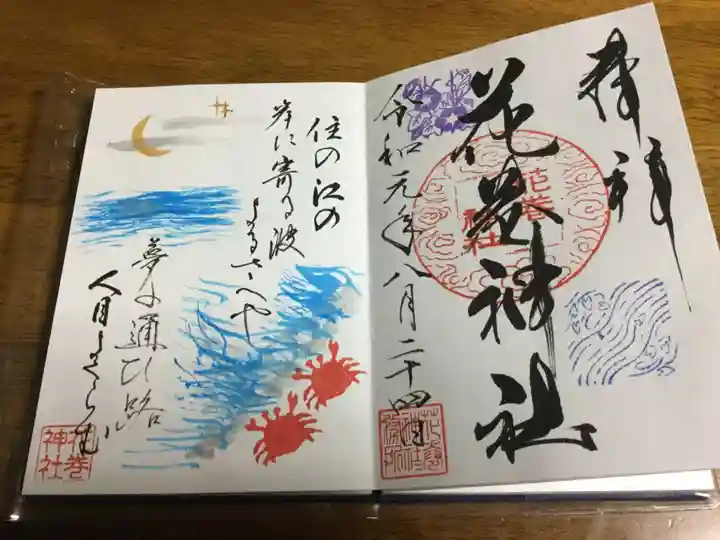 拝拝
花巻神社
花巻
神社
令和元年八月二十四日
住の江の
岸に寄る波
よるさへや
夢の通ひ路
人目よくらむ
花巻
神社